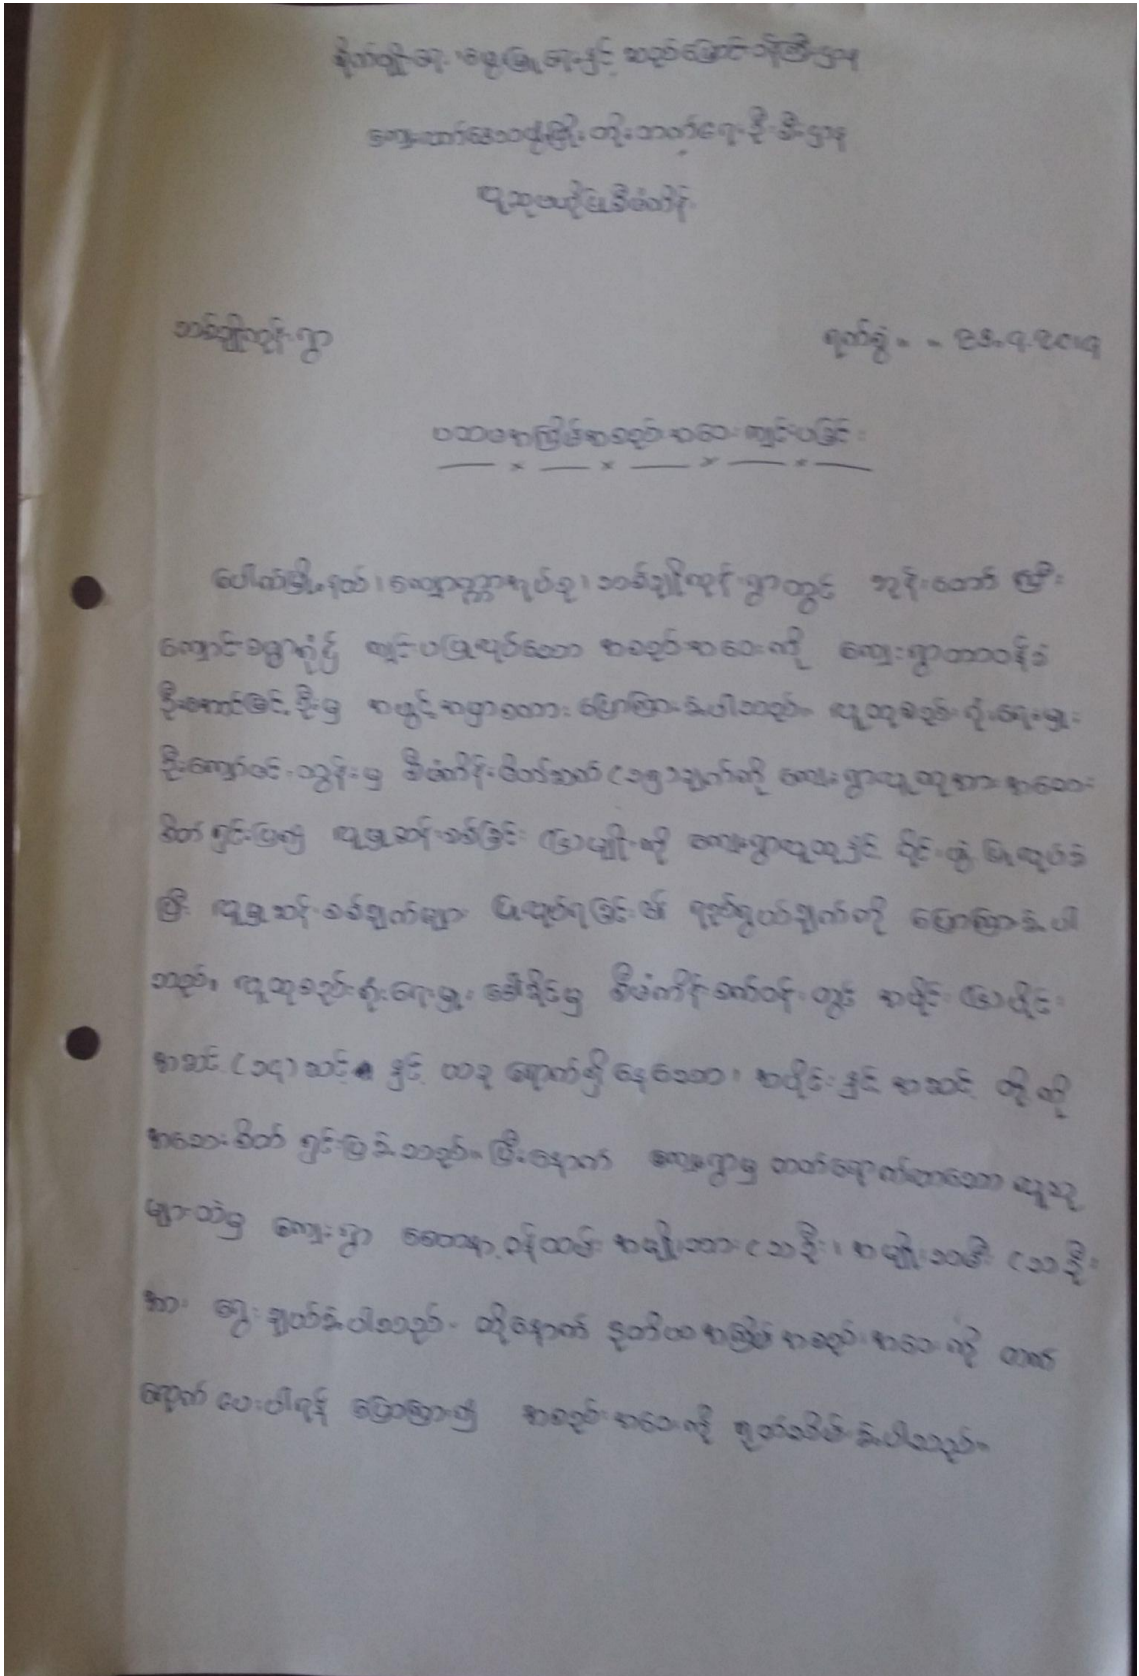 စိုက်ပျိုးရေး၊ မွေးမြူရေးနှင့် ဆည်မြောင်းဝန်ကြီးဌာန
ကျေးလက်ဒေသဖွံ့ဖြိုးတိုးတက်ရေးဦးစီးဌာန
လူထုဗဟိုပြုစီမံကိန်း
သစ်ချိုကုန်းရွာ ရက်စွဲ။ ။ ၂၁.၇.၂၀၁၇
ပထမအကြိမ်အစည်းအဝေးကျင်းပခြင်း
ပေါက်မြို့နယ်၊ အုပ်စု၊ သစ်ချိုကုန်းရွာတွင် ဘုန်းတော်ကြီး
ကျောင်းဓမ္မာရုံ၌ ကျင်းပပြုလုပ်သော အစည်းအဝေးကို ကျေးရွာတာဝန်ခံ
ဦးအောင်မြင့်ဦးမှ အဖွင့်အမှာစကား ပြောကြားခဲ့ပါသည်။ လူထုစည်းရုံးရေးမှူး
ဦးကျော်ဇင်ထွန်းမှ စီမံကိန်းမိတ်ဆက် ချက်ကို ကျေးရွာလူထုအား အသေး
စိတ်ရှင်းပြ၍ လူမှုဆန်းစစ်ခြင်း ကို ကျေးရွာလူထုနှင့် ပြုလုပ်ခဲ့
ပြီး လူမှုဆန်းစစ်ချက်များ ပြုလုပ်ရခြင်း၏ ရည်ရွယ်ချက်ကို ပြောကြားခဲ့ပါ
သည်။ လူထုစည်းရုံးရေးမှူး မှ စီမံကိန်းစက်ဝန်းတွင် အပိုင်း
အဆင့် ဆင့် နှင့် ယခု ရောက်ရှိနေသော အပိုင်းနှင့် အဆင့် တို့ကို
အသေးစိတ် ရှင်းပြခဲ့သည်။ ပြီးနောက် ကျေးရွာမှ တက်ရောက်လာသော လူထု
များထဲမှ ကျေးရွာ စေတနာ့ဝန်ထမ်း အမျိုးသား (၁)ဦး၊ အမျိုးသမီး (၁)ဦး
အား ရွေးချယ်ခဲ့ပါသည်။ ထို့နောက် ဒုတိယအကြိမ် အစည်းအဝေးကို တက်
ရောက်ပေးပါရန် ပြောကြား၍ အစည်းအဝေးကို ရုတ်သိမ်းခဲ့ပါသည်။